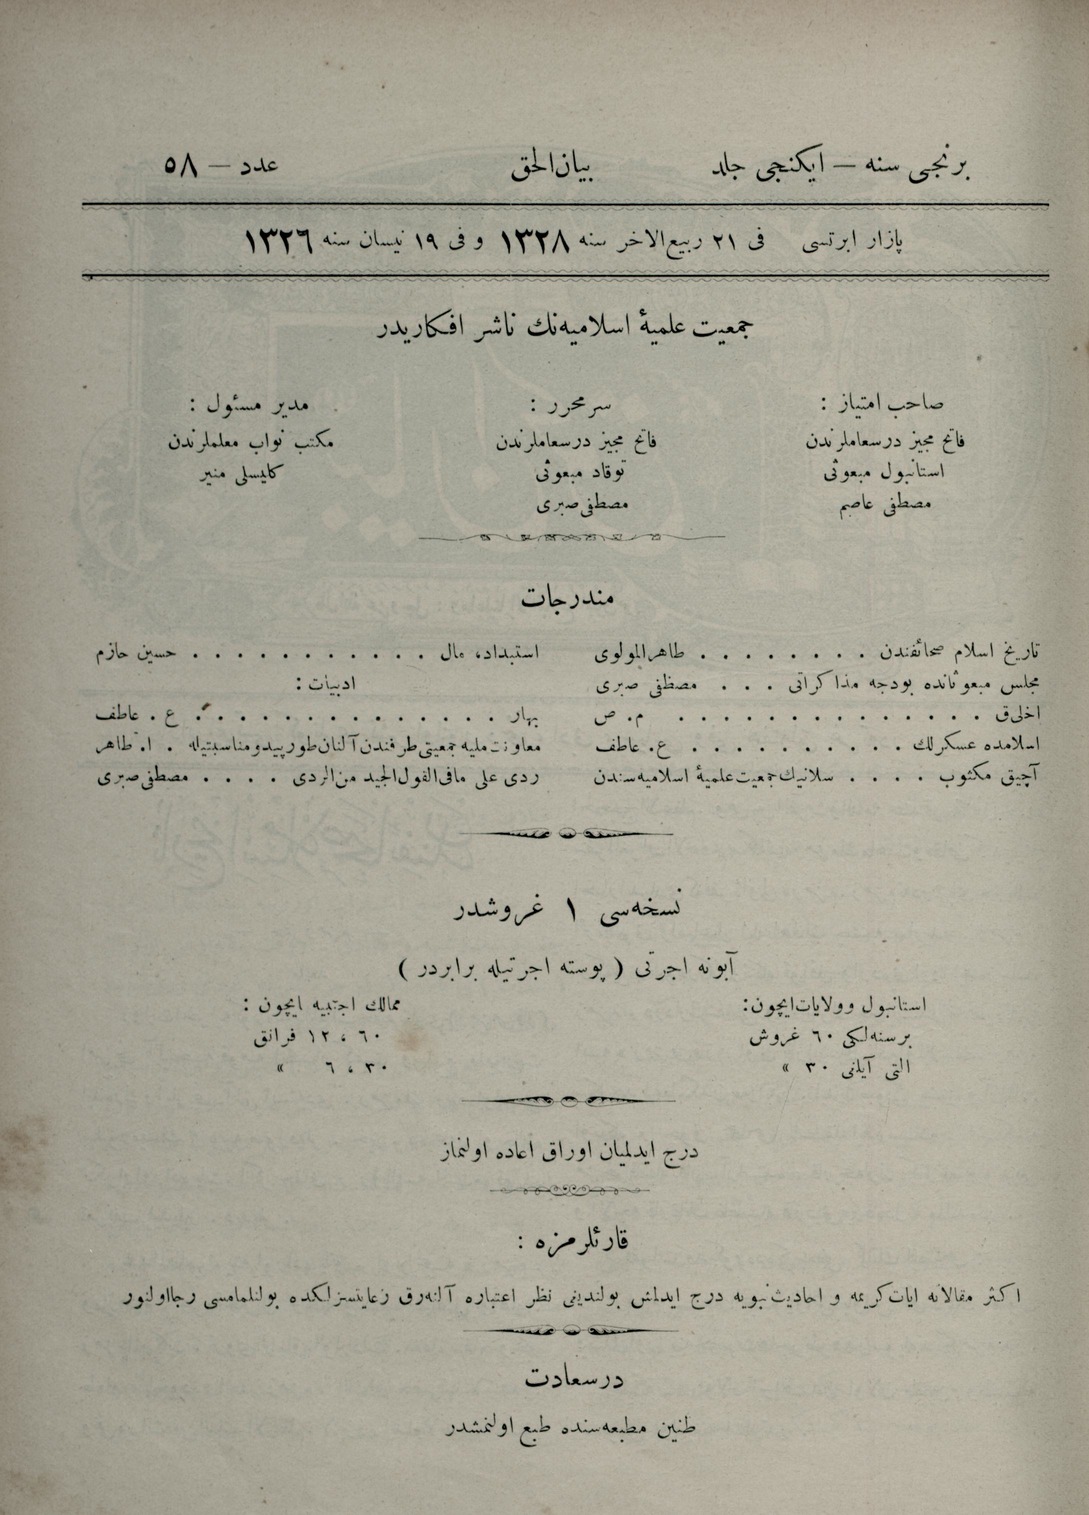 برنجی سنه — ایکنجی جلد
بیان‌الحق
عدد — ٥٨
پازار ایرتسی فی ٢١ ربیع‌الاخر سنه ١٣٢٨ و فی ١٩ نیسان سنه ١٣٢٦
جمعیت علمیۀ اسلامیه‌نك ناشر افكاریدر
صاحب امتیاز :
فاتح مجیز درسعاملرندن
استانبول مبعوثی
مصطفی عاصم
سر محرر :
فاتح مجیز درسعاملرندن
توقاد مبعوثی
مصطفی صبری
مدیر مسئول :
مكتب نواب معلملرندن
كلیسلی منیر
مندرجات
تاریخ اسلام صحائفندن . . . . . . . . طاهرالمولوی
مجلس مبعوثانده بودجه مذاكراتی . . . مصطفی صبری
اخلاق . . . . . . . . . . . . . . م. ص
اسلامده عسكرلك . . . . . . . . . . ع. عاطف
آچیق مكتوب . . . . سلانیك جمعیت علمیۀ اسلامیه‌سندن
استبداد، مال . . . . . . . . . . . حسین حازم
ادبیات :
بهار . . . . . . . . . . . . . . ع. عاطف
معاونت ملیه جمعیتی طرفندن آلنان طورپیدو مناسبتیله . ا. طاهر
ردی علی مافی القول الجید من الردی . . . . مصطفی صبری
نسخه‌سی ١ غروشدر
آبونه اجرتی ( پوسته اجرتیله برابردر )
استانبول وولایات ایچون :
بر سنه‌لكی ٦٠ غروش
التی آیلنی ٣٠ »
ممالك اجنبیه ایچون :
٦٠ ، ١٢ فرانق
٣٠ ، ٦ »
درج ایدلمیان اوراق اعاده اولنماز
قارئلرمزه :
اكثر مقالاته ایات كریمه و احادیث نبویه درج ایدلمش بولندینی نظر اعتباره آلنه‌رق رعایتسزلكده بولنلمامسی رجا اولنور
درسعادت
طنین مطبعه‌سنده طبع اولنمشدر